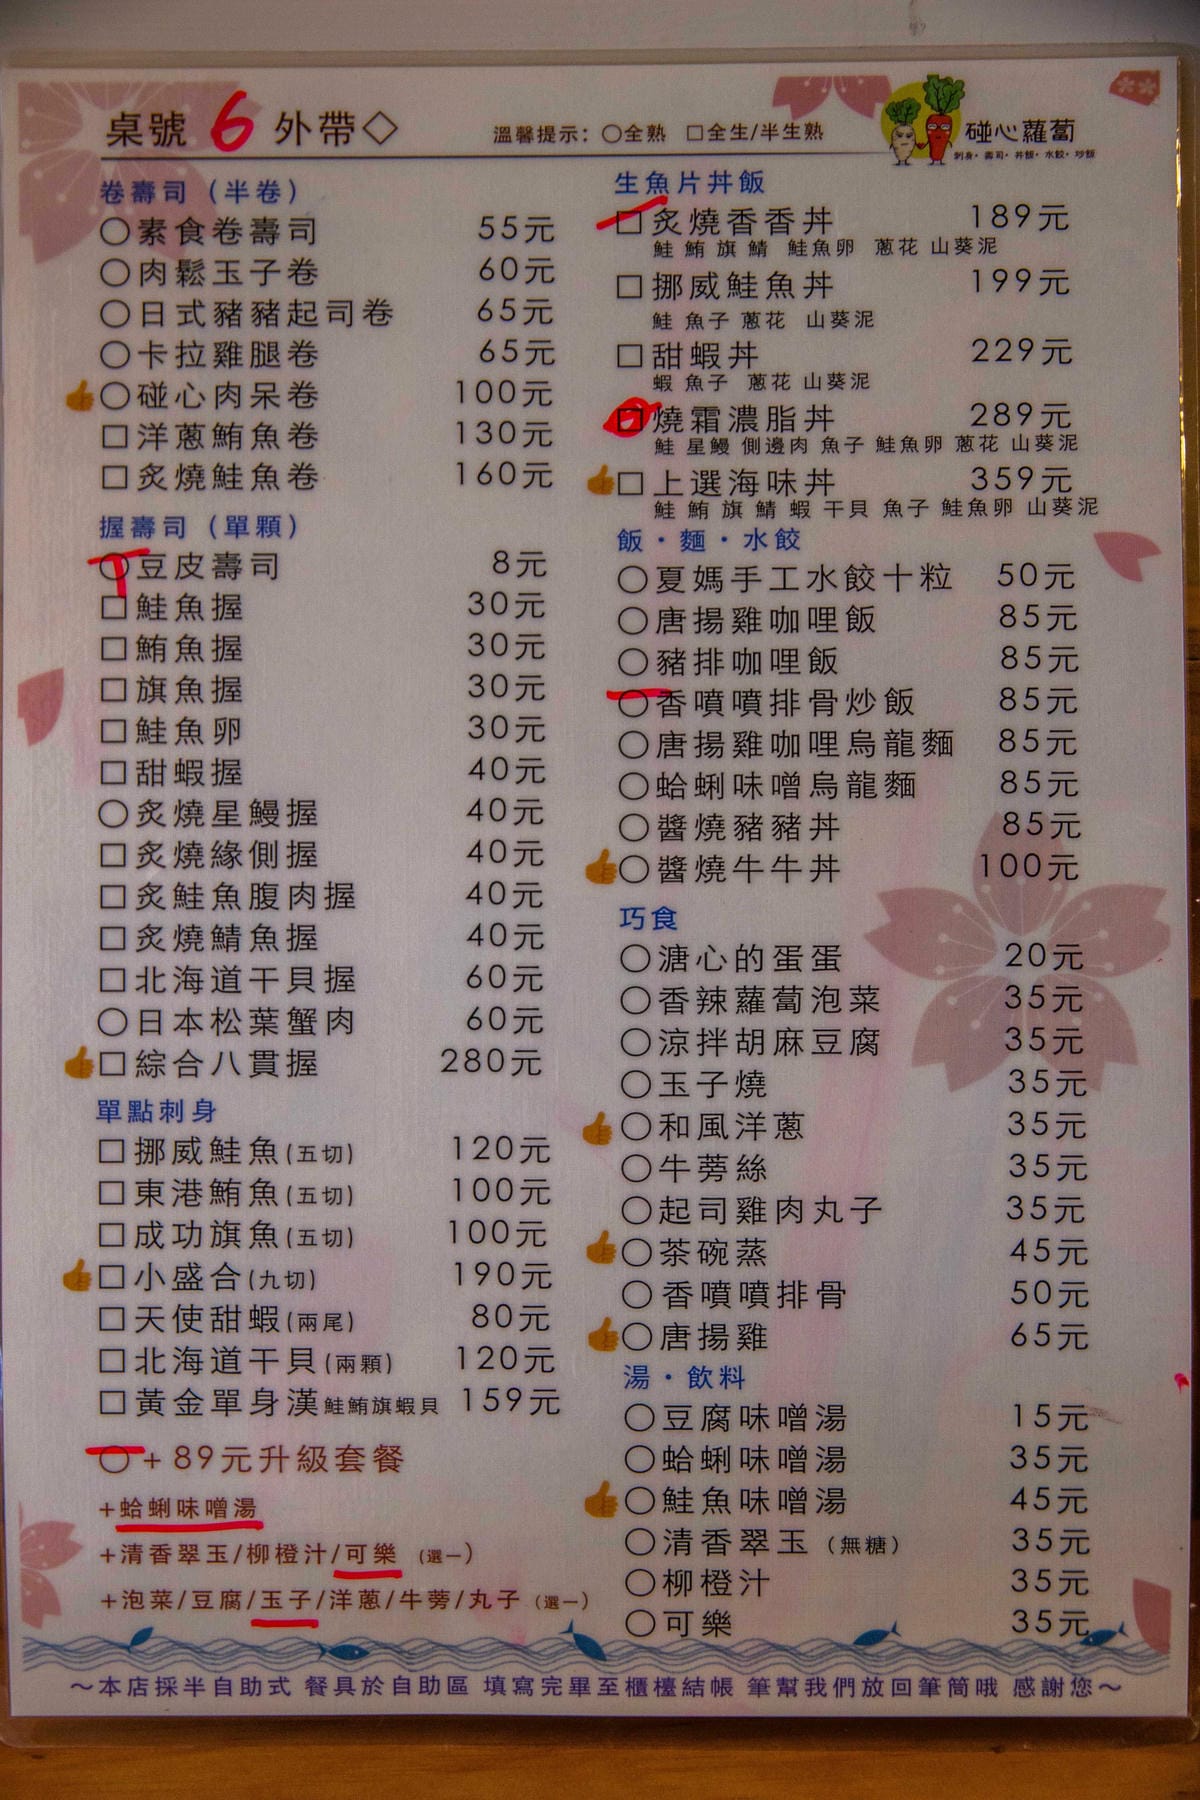 桌號 6 外帶◇
溫馨提示：○全熟 □全生/半生熟
碰心蘿蔔
刺身・壽司・丼飯・水餃・炒飯
卷壽司（半卷）
○素食卷壽司 55元
○肉鬆玉子卷 60元
○日式豬豬起司卷 65元
○卡拉雞腿卷 65元
○碰心肉呆卷 100元
□洋蔥鮪魚卷 130元
□炙燒鮭魚卷 160元
握壽司（單顆）
○豆皮壽司 8元
□鮭魚握 30元
□鮪魚握 30元
□旗魚握 30元
□鮭魚卵 30元
□甜蝦握 40元
○炙燒星鰻握 40元
□炙燒緣側握 40元
□炙鮭魚腹肉握 40元
□炙燒鯖魚握 40元
□北海道干貝握 60元
○日本松葉蟹肉 60元
□綜合八貫握 280元
單點刺身
□挪威鮭魚(五切) 120元
□東港鮪魚(五切) 100元
□成功旗魚(五切) 100元
□小盛合(九切) 190元
□天使甜蝦(兩尾) 80元
□北海道干貝(兩顆) 120元
□黃金單身漢鮭鮪旗蝦貝 159元
○+89元升級套餐
+蛤蜊味噌湯
+清香翠玉/柳橙汁/可樂（選一）
+泡菜/豆腐/玉子/洋蔥/牛蒡/丸子（選一）
生魚片丼飯
□炙燒香香丼 189元
鮭 鮪 旗 鯖 鮭魚卵 蔥花 山葵泥
□挪威鮭魚丼 199元
鮭 魚子 蔥花 山葵泥
□甜蝦丼 229元
蝦 魚子 蔥花 山葵泥
□燒霜濃脂丼 289元
鮭 星鰻 側邊肉 魚子 鮭魚卵 蔥花 山葵泥
□上選海味丼 359元
鮭 鮪 旗 鯖 蝦 干貝 魚子 鮭魚卵 山葵泥
飯・麵・水餃
○夏媽手工水餃十粒 50元
○唐揚雞咖哩飯 85元
○豬排咖哩飯 85元
○香噴噴排骨炒飯 85元
○唐揚雞咖哩烏龍麵 85元
○蛤蜊味噌烏龍麵 85元
○醬燒豬豬丼 85元
○醬燒牛牛丼 100元
巧食
○溏心的蛋蛋 20元
○香辣蘿蔔泡菜 35元
○涼拌胡麻豆腐 35元
○玉子燒 35元
○和風洋蔥 35元
○牛蒡絲 35元
○起司雞肉丸子 35元
○茶碗蒸 45元
○香噴噴排骨 50元
○唐揚雞 65元
湯・飲料
○豆腐味噌湯 15元
○蛤蜊味噌湯 35元
○鮭魚味噌湯 45元
○清香翠玉（無糖） 35元
○柳橙汁 35元
○可樂 35元
～本店採半自助式 餐具於自助區 填寫完畢至櫃檯結帳 筆幫我們放回筆筒哦 感謝您～